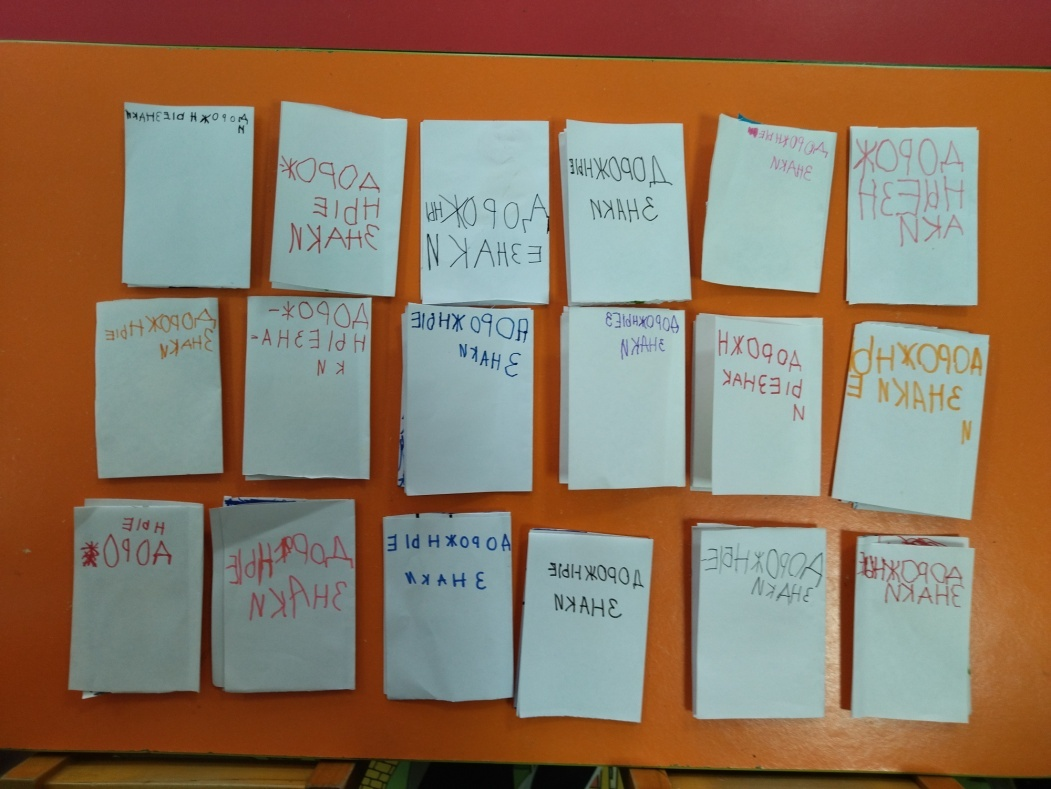 ДОРОЖНЫЕЗНАКИ
И
ДОРОЖ
НЫЕ
ЗНАКИ
ДОРОЖНЫ
ЕЗНАКИ
ДОРОЖНЫЕ
ЗНАКИ
ДОРОЖНЫЕ
ЗНАКИ
ДОРОЖ
НЫЕЗН
АКИ
ДОРОЖНЫЕ
ЗНАКИ
ДОРОЖ-
НЫЕЗНА-
КИ
ДОРОЖНЫЕ
ЗНАКИ
ДОРОЖНЫЕЗ
ЗНАКИ
ДОРОЖН
ЫЕЗНАК
И
ДОРОЖНЫ
ЗНАКИ Е
И
НЫЕ
ДОРОЖ
ДОРОЖНЫЕ
ЗНАКИ
ДОРОЖНЫЕ
ЗНАКИ
ДОРОЖНЫЕ
ЗНАКИ
ДОРОЖНЫЕ
ЗНАКИ
ДОРОЖНЫЕ
ЗНАКИ